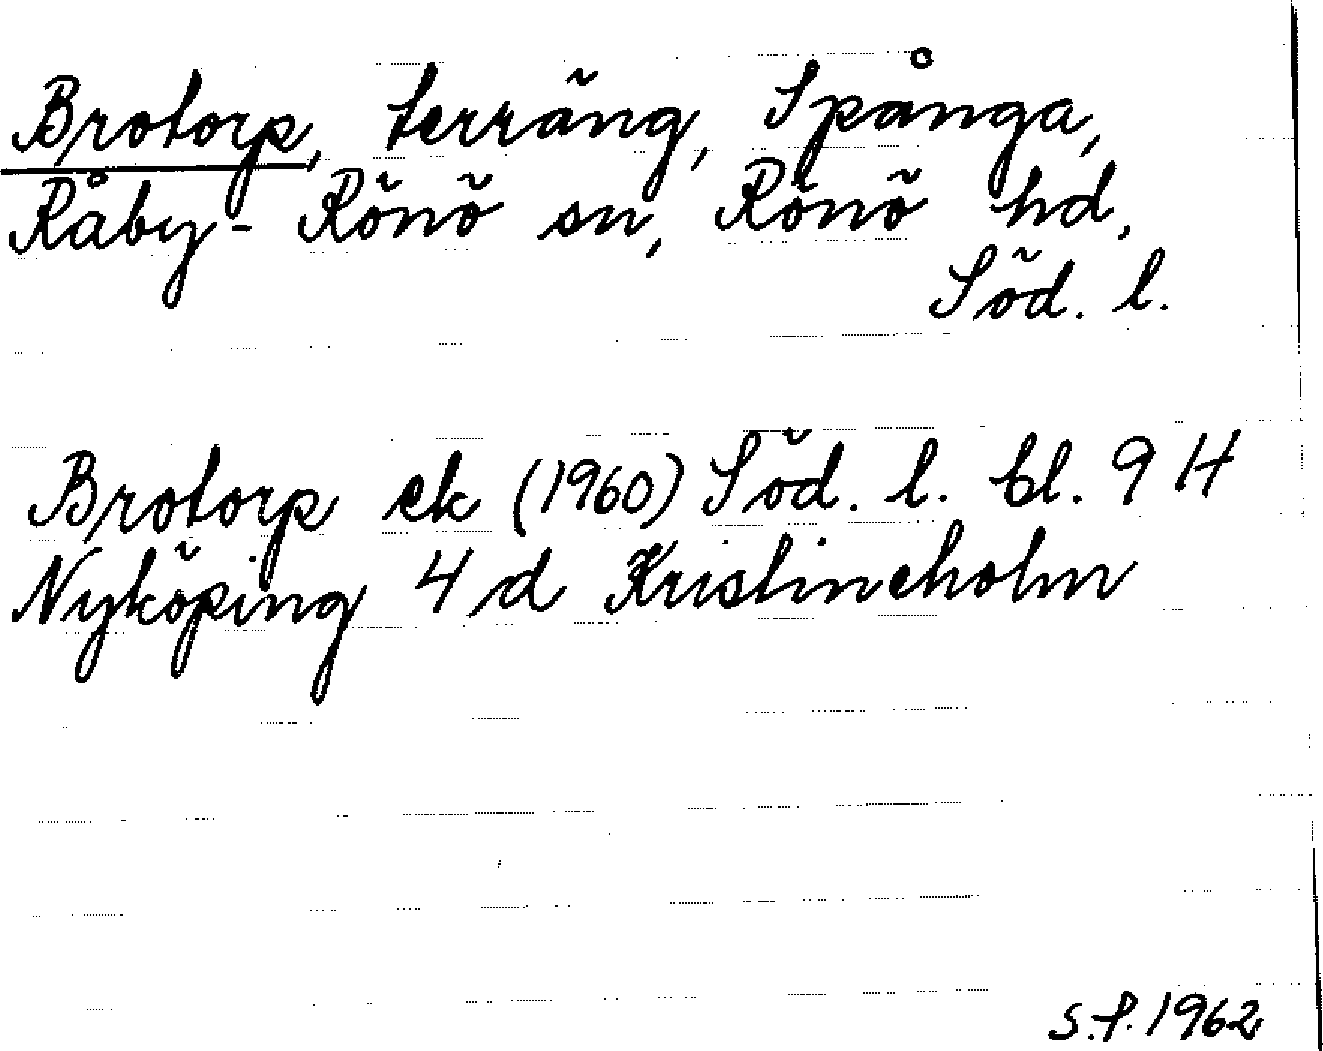 Brotorp, terräng, Spånga,
Råby-Rönö sn, Rönö hd,
Söd. l.
Brotorp ek (1960) Söd. l. bl. 9 H
Nyköping 4 d Kristineholm
S.P. 1962